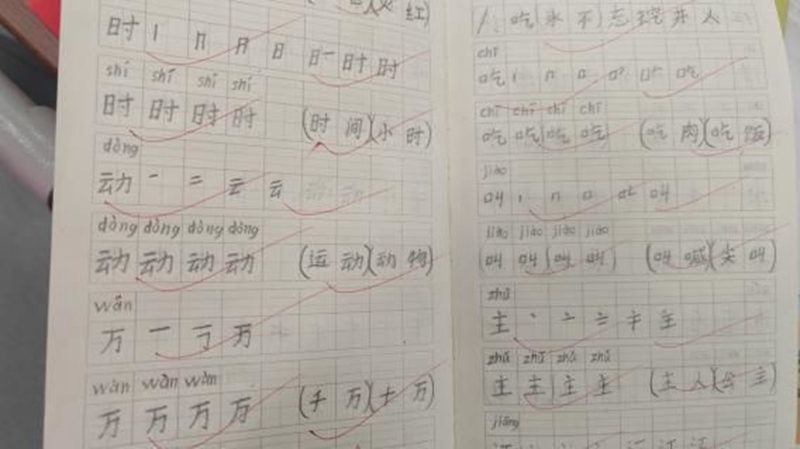 红)
时 丨 冂 日 日 旪 时 时
shí shí shí shí
时 时 时 时 (时 间)(小 时)
dòng
动 一 二 云 云
dòng dòng dòng dòng
动 动 动 动 (运 动)(动 物)
wàn
万 一 丁 万
wàn wàn wàn
万 万 万 万 (千 万)(十 万)
吃 (水 不) 忘 挖 井 人
chī
吃 丨 冂 口 吃
chī chī chī chī
吃 吃 吃 吃 (吃 肉)(吃 饭)
jiào
叫 丨 冂 口 叫
jiào jiào jiào jiào
叫 叫 叫 叫 (叫 喊)(尖 叫)
zhǔ
主 丶 亠 主
zhǔ zhǔ zhǔ zhǔ
主 主 主 主 (主 人)(公 主)
jiāng